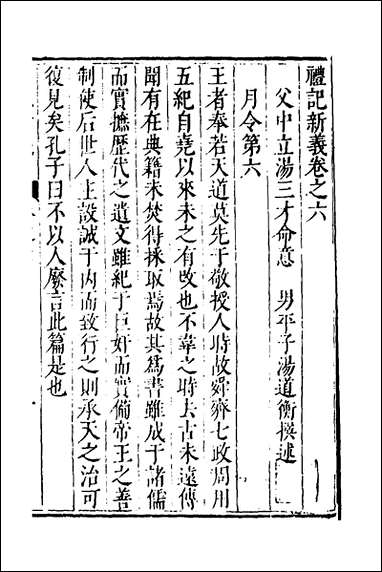 禮記新義卷之六
父中立湯三才命意　男平子湯道衡撰述
月令第六
王者奉若天道莫先于敬授人時故舜齊七政周用
五紀自堯以來未之有改也不韋之時去古未遠傳
聞有在典籍未焚得採取焉故其為書雖成于諸儒
而實摭歷代之遺文雖紀于巨奸而實備帝王之善
制使后世人主設誠于內而致行之則承天之治可
復見矣孔子曰不以人廢言此篇是也